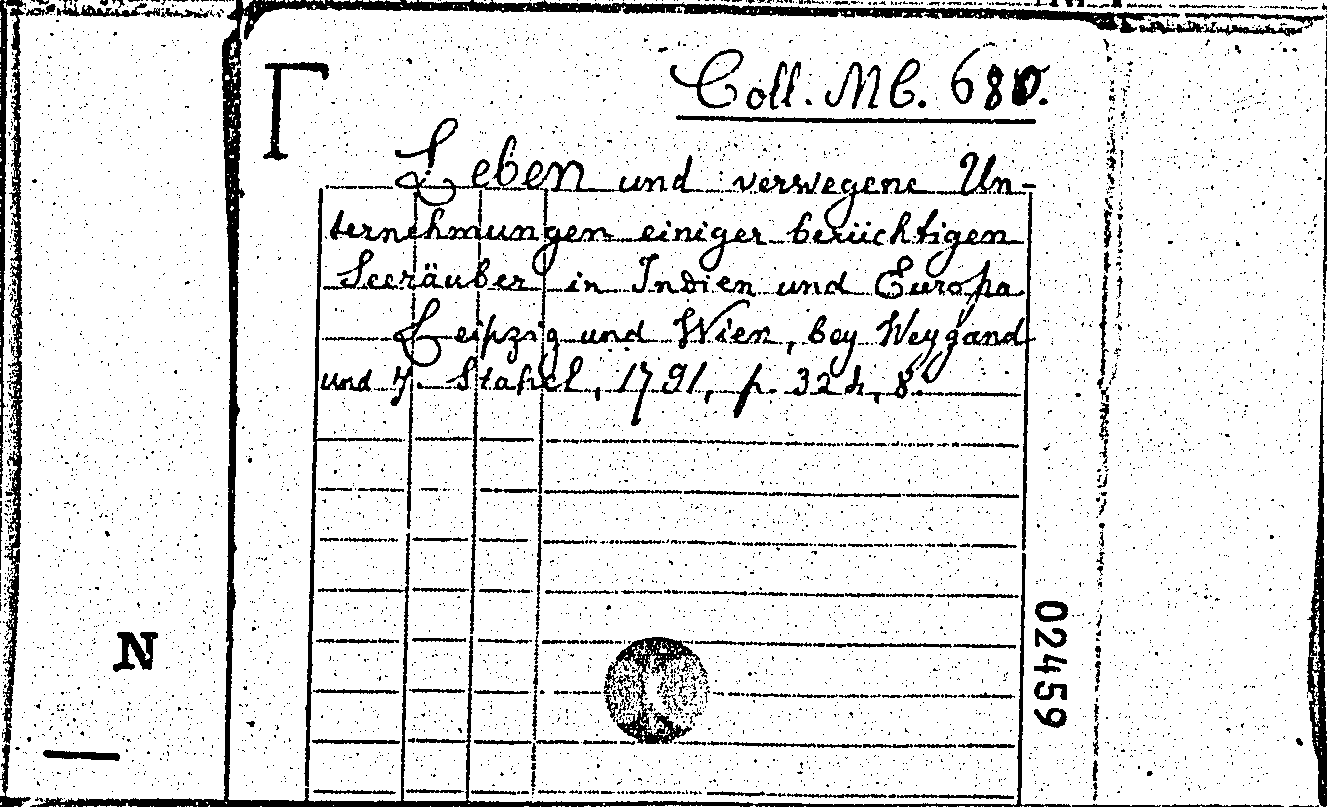 Coll. MC. 680.
Leben und verwegene Un-
ternehmungen einiger berüchtigen
Seeräuber in Indien und Europa
Leipzig und Wien, bey Weygand
und J. Stahel, 1791, p. 324, 8.
02459
N